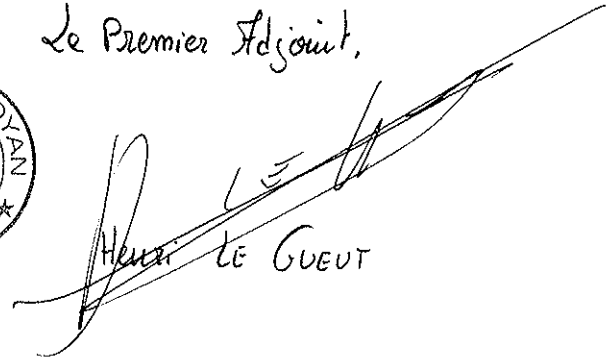 Le Premier Adjoint,
OYAN ★
LE
Henri LE GUEUT